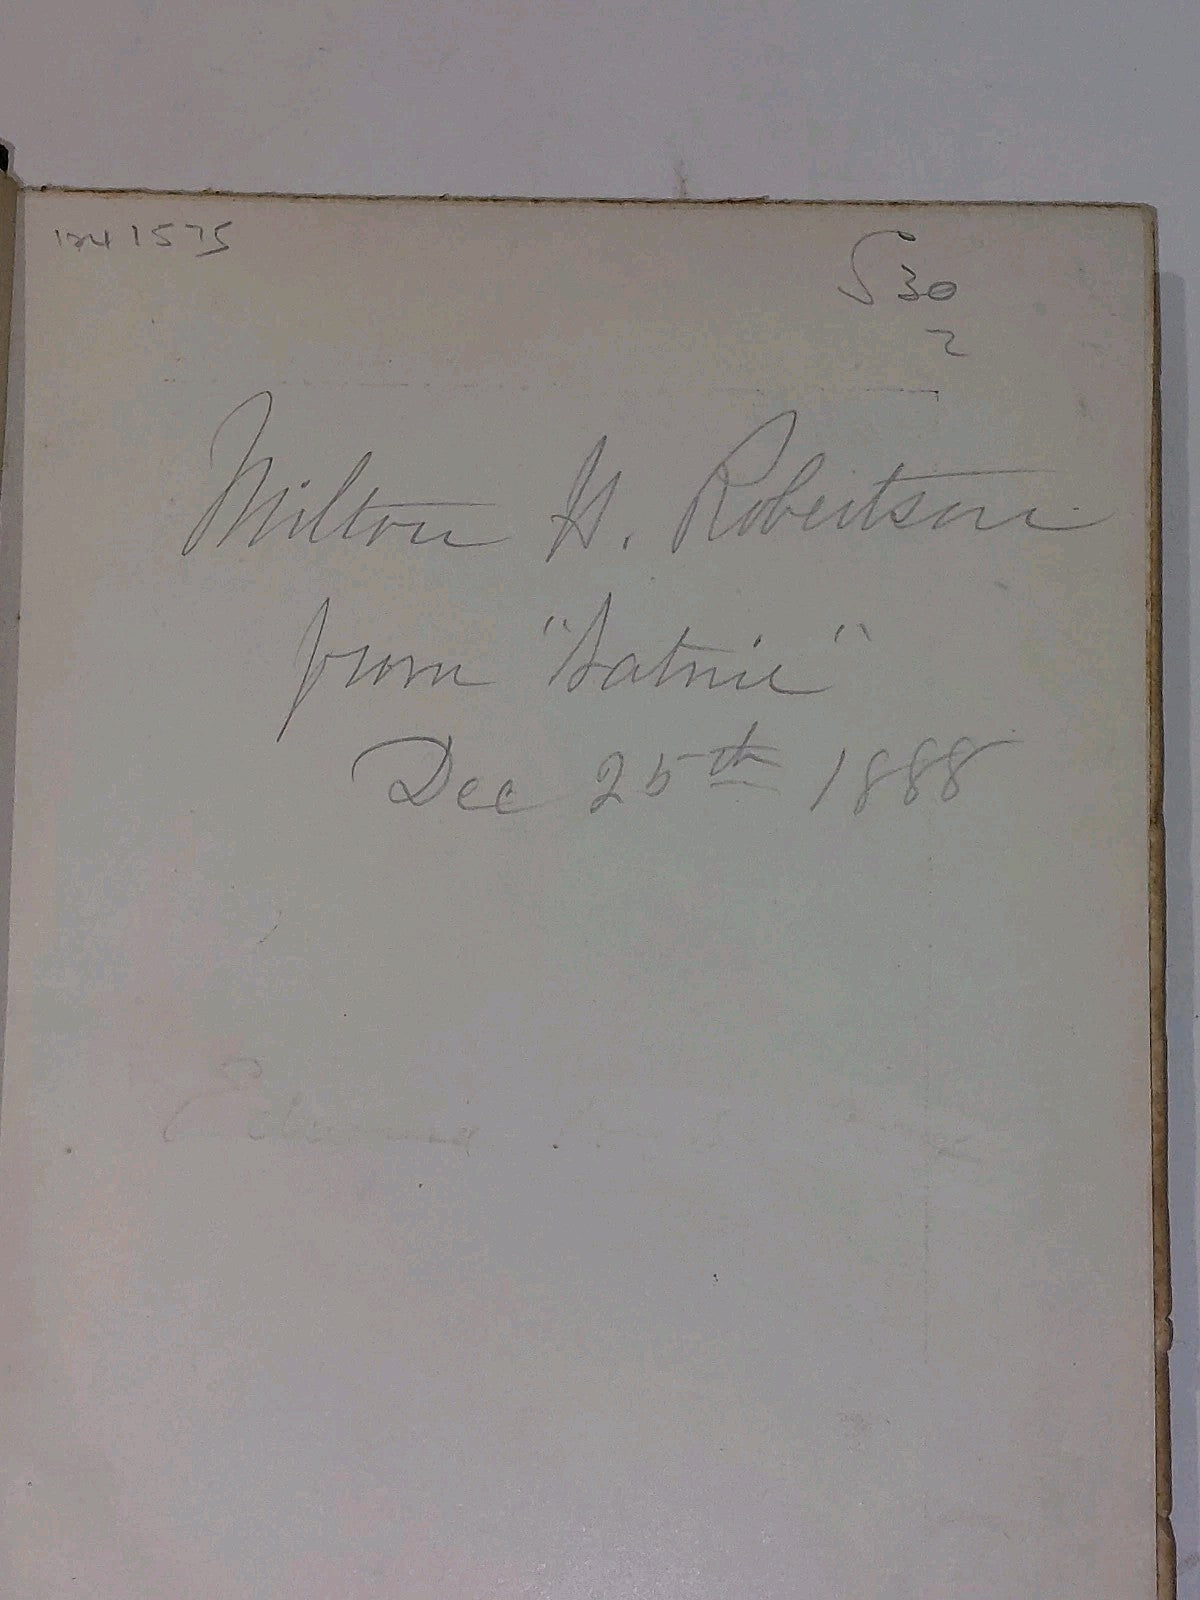 1241575
S 30
2
Milton H. Robertson
from "Satnie"
Dec 25th 1888